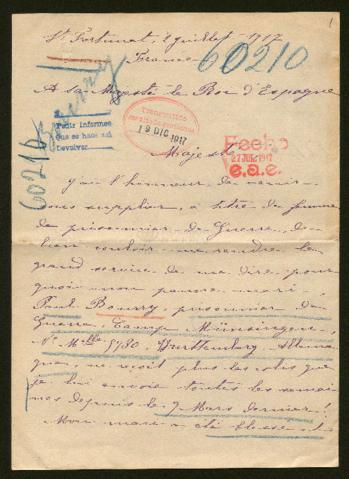 1
St Fortunat, 2 juillet 1917
France
60210
A Sa Majesté le Roi d'Espagne
60210
Pedir informes
que se hace así
Devolver
19 DIC 1917
Fecho
27 JUL 1917
e.a.e.
Majesté
que l'honneur de venir
vous supplier, à titre de femme
de prisonnier de Guerre, de
bien vouloir me rendre le
grand service de me dire pour
quoi mon pauvre mari
Paul Bourry, prisonnier de
Guerre, Camp Münsingen
No Mlle 5780 Wurttemberg Allema
gne, ne reçoit plus les colis que
je lui envoie toutes les semai
nes depuis le 7 Mars dernier!
Mon mari a été blessé